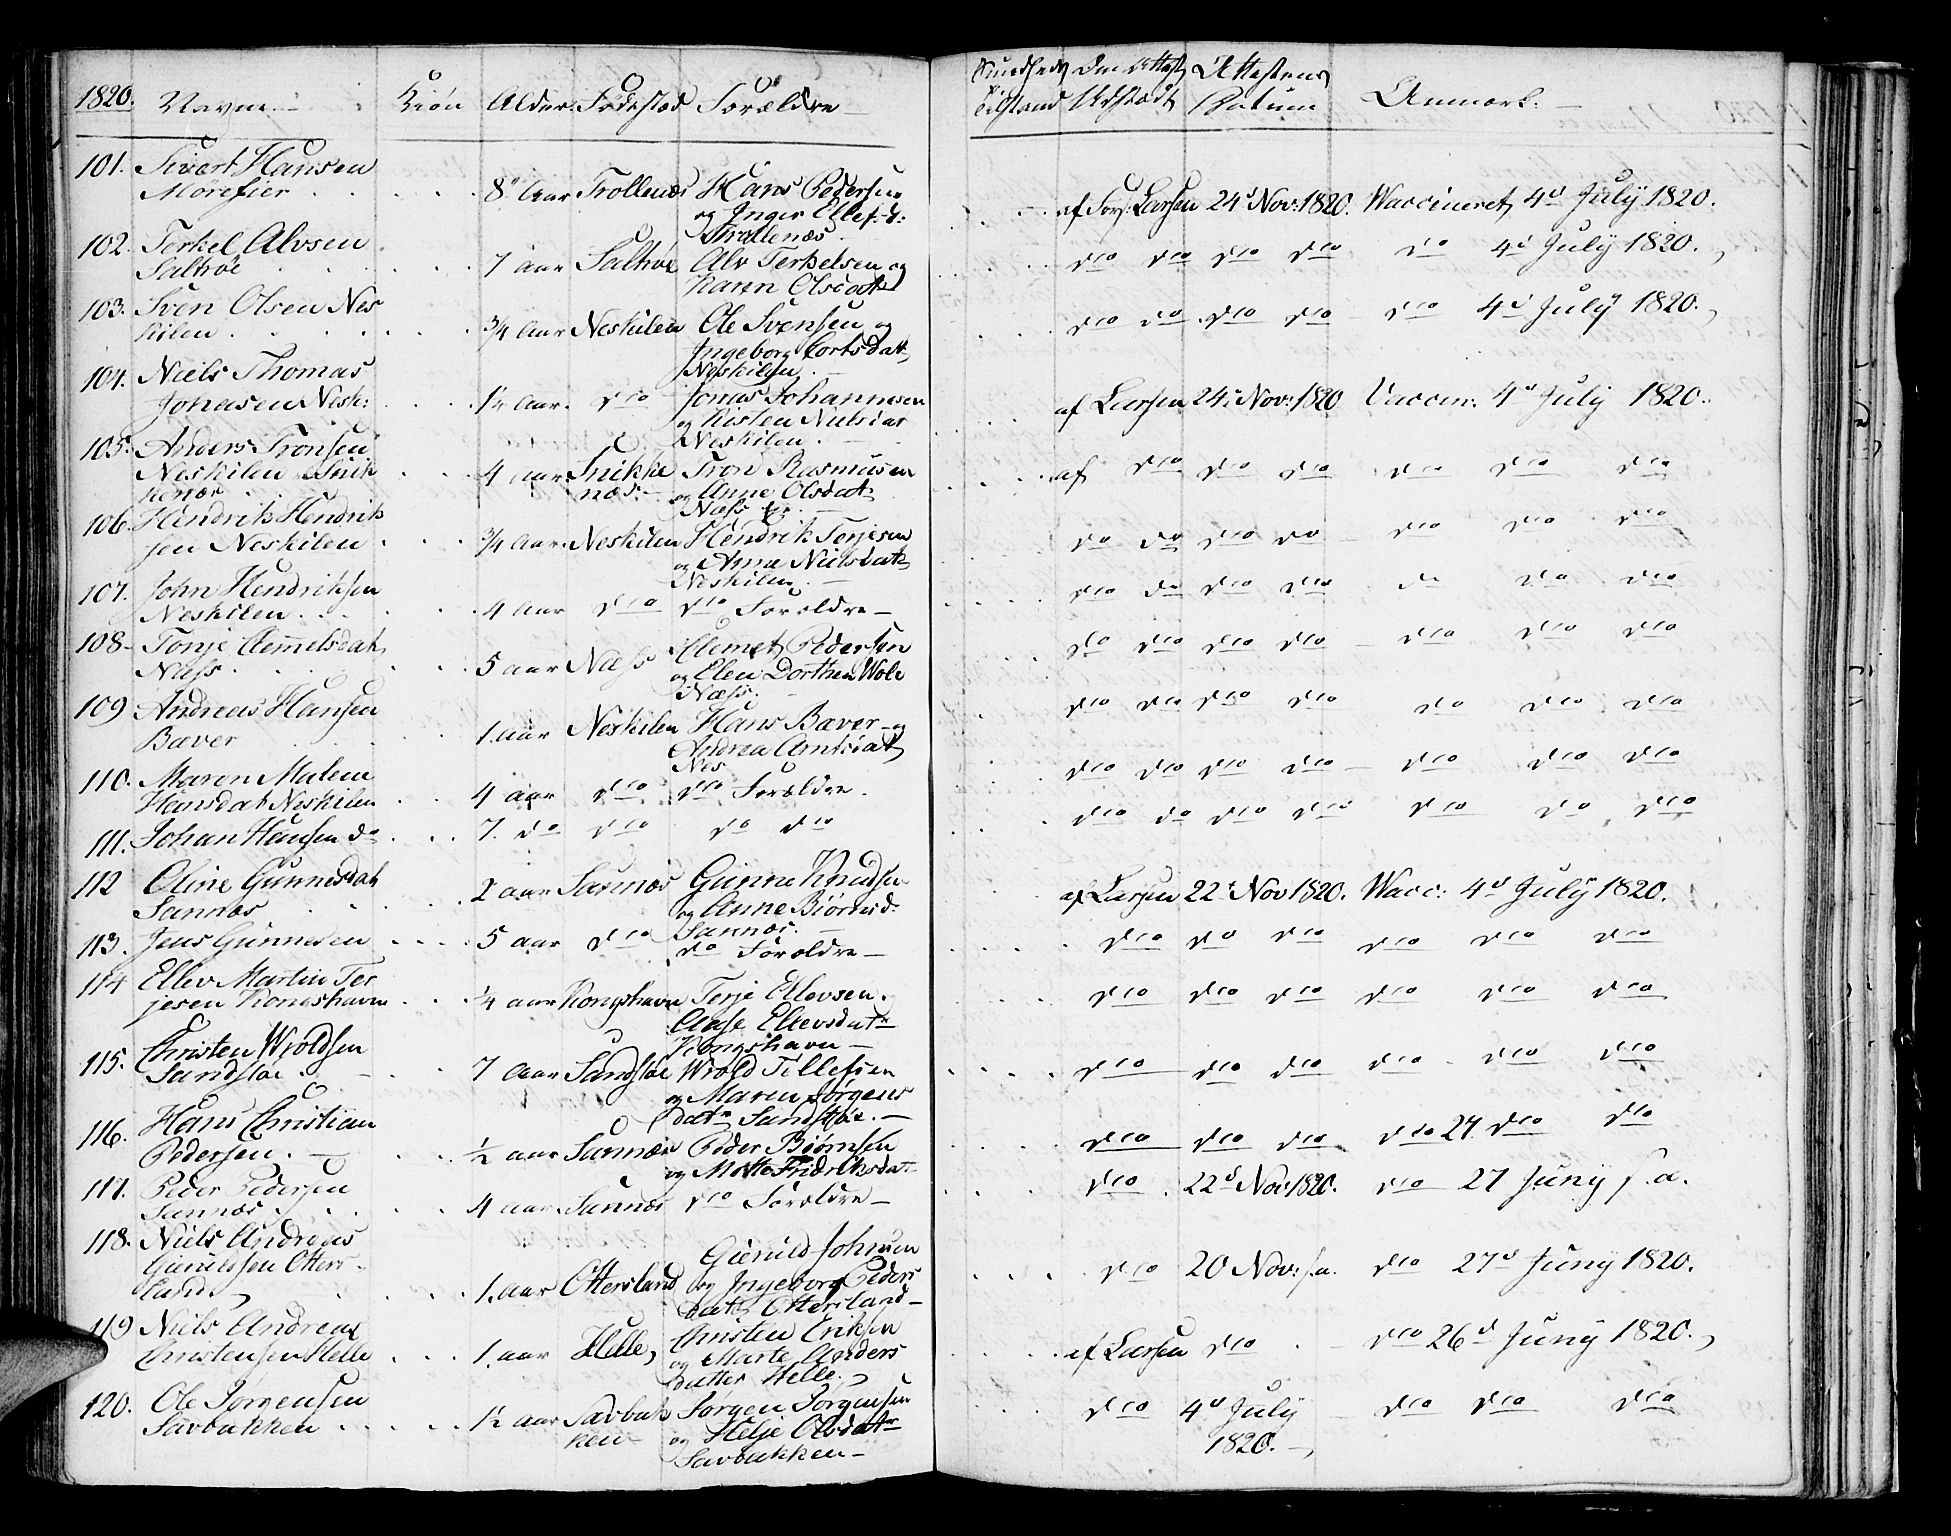 1820. Navn. Kiön Alder. Födested Forældre
Sundheds Tilstand Den Attest Udstædt Attestens Datum Anmærk:
101. Sivert Hansen
Mörefier . . . . . 8 Aar Trollenæs Hans Pedersen
og Inger Ellefsd:
Trollenæs. af Forp: Larsen 24d Nov: 1820. Vaccineret 4d July 1820.
102. Terkel Alvsen
Saltröe . . . . 7 aar Saltröe Alv Terkelsen og
Karen Olsdat
dto dto dto dto do 4d July 1820.
103. Sven Olsen Nes
kilen . . . . 3/4 Aar Neskilen Ole Svensen og
Ingeborg Cortsdat
Neskilen.
dto do dto dto dto 4d July 1820.
104. Niels Thomas
Jonasen Nesk: . . . 1½ Aar. dto Jonas Johannesen
og Kisten Nielsdat
Neskilen.
af Larsen 24d Nov: 1820 Vaccin: 4d July 1820.
105. Anders Tronsen
Neskilen Snik
kenæs . . . 4 aar Snikke
næs Tron Rasmusen
og Anne Olsdat
Næss
af dto dto dto dto dto dto
106. Hendrik Hendrik
sen Neskilen . . . 3/4 Aar. Neskilen Hendrik Terjesen
og Anne Nielsdat
Neskilen.
do do dto do dto dto dto
107. John Hendriksen
Neskilen . . . 4 Aar dto dto Forældre
dto do dto dto do do dto
108. Tonje Clemmetsdat
Næss . . . 5 aar Næss Clemet Pedersen
og Elen Dorthea Wole
Næss.
do dto dto dto dto dto dto
109 Andreas Hansen
Bæver . . . 1. aar Neskilen Hans Bæver og
Andrea Arntsdat
Nes
dto dto dto dto do dto dto
110. Maren Malene
Hansdat Neskilen . . . 4 aar dto dto Forældre.
dto dto dto dto dto dto dto
111. Johan Hansen do . . . 7. do dto do dto
dto do dto dto dto do dto
112 Oline Gunnesdat
Sannæs . . . 2 aar Sannæs Gunne Knudsen
og Anne Biörnsd:
Sannæs.
af Larsen 22d Nov 1820. Vacc: 4d July 1820.
113. Jens Gunnesen . . . 5 aar dto do Forældre
dto do dto dto dto dto
114 Ellev Martin Ter
jesen Kongshavn . . . ¼ aar Kongshavn Terje Ellevsen.
Aase Ellevsdatr
Kongshavn
dto dto dto dto dto dto
115. Christen Wroldsen
Sandstöe . . . 7 Aar Sandstöe Wrold Tellefsen
og Maren Jörgens
datr Sandstöe.
dto dto dto dto dto dto
116. Hans Christian
Pedersen. ½ aar Sannæs Peder Biörnsen
og Mette Fridriksdat
dto dto dto dto 27. dto dto
117. Peder Pedersen
Sannæs . . . 4 aar Sannæs dto Forældre
dto . 22d Nov: 1820. dto 27 Juny s. a.
118. Niels Andreas
Gunildsen Otters
land . . . 1. aar Ottersland Gunild Johnsen
og Ingeborg Peders
dat Ottersland
dto 20 Nov: s. a. dto 27d Juny 1820.
119 Niels Andreas
Christensen Helle . . . 1. aar Helle, Christen Eriksen
og Marte Anders
datter Helle.
af Larsen dto dto 26d Juny 1820.
120. Ole Jörgensen
Savbakken . . . 1½ aar Savbak
ken Jörgen Jörgensen
og Helje Olsdatr
Savbakken
dto 4d July
1820. dto dto dto